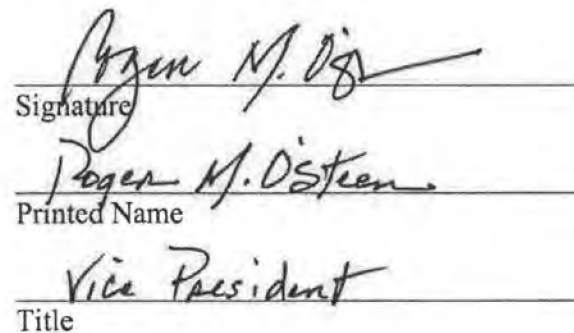 Roger M. O'S
Signature
Roger M. O'Steen
Printed Name
Vice President
Title